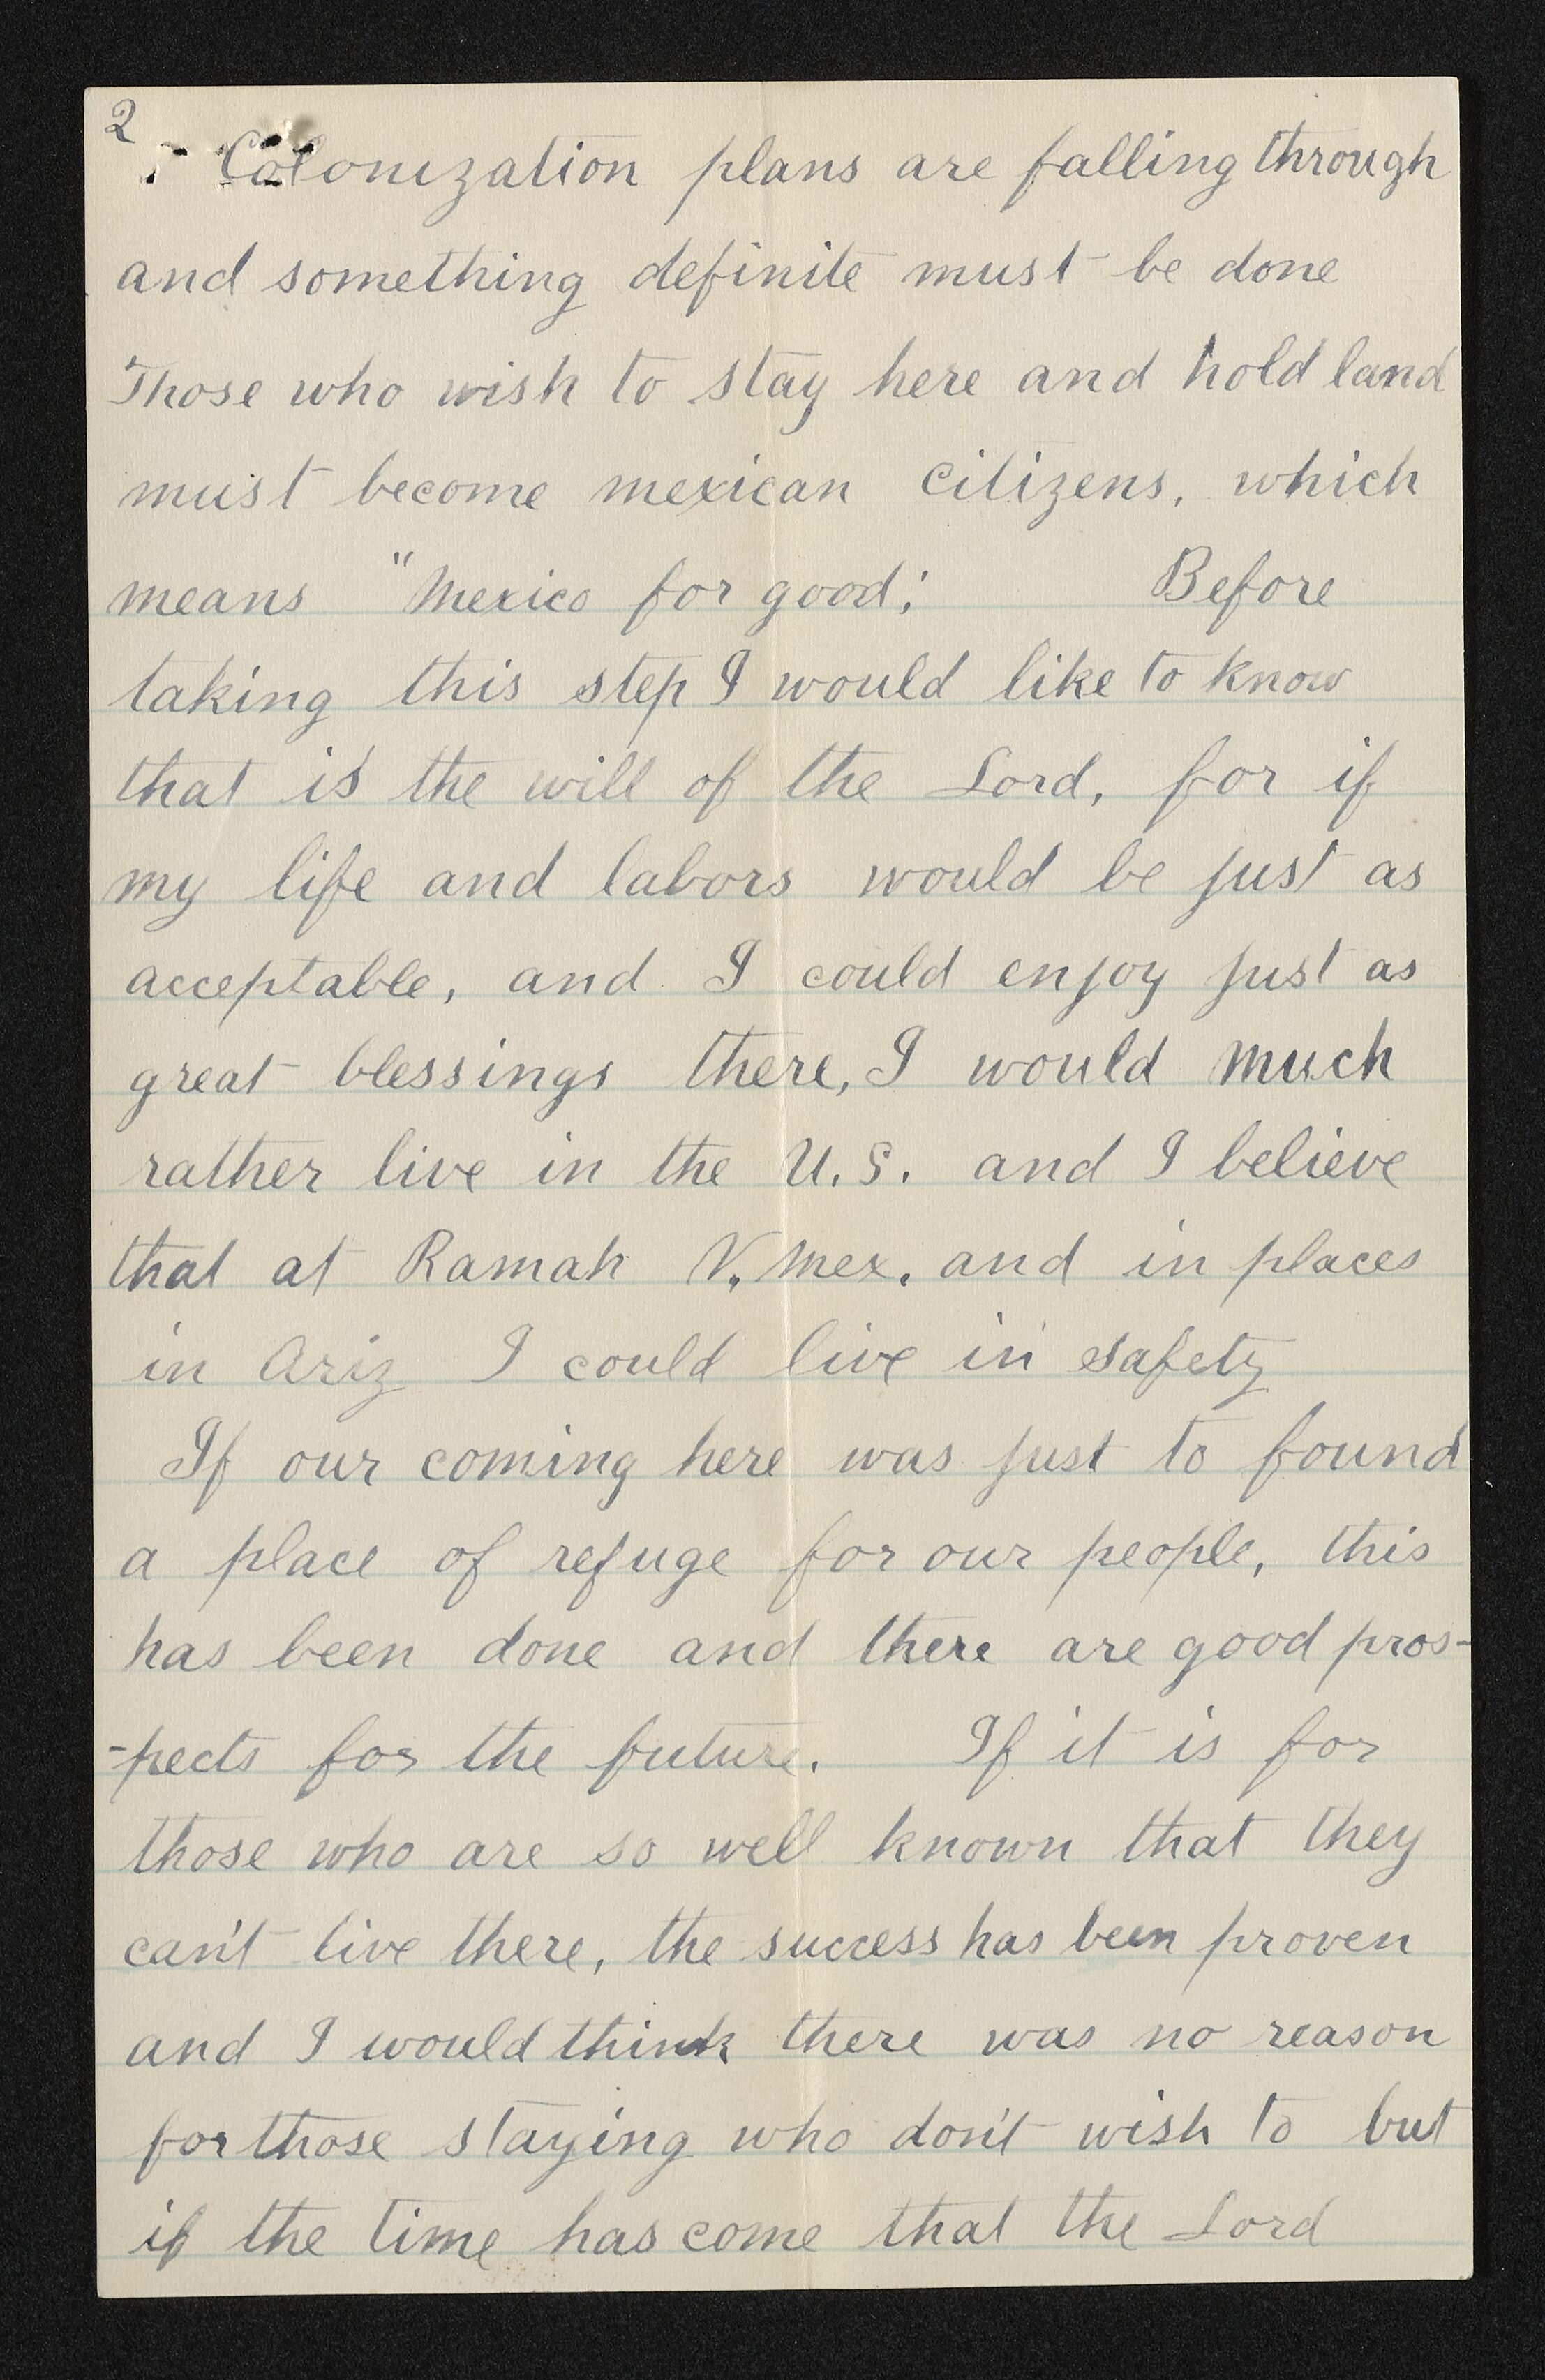 2
Colonization plans are falling through
and something definite must be done
Those who wish to stay here and hold land
must become mexican citizens, which
means "Mexico for good; Before
taking this step I would like to know
that is the will of the Lord, for if
my life and labors would be just as
acceptable, and I could enjoy just as
great blessings there, I would much
rather live in the U.S. and I believe
that at Ramah N. Mex. and in places
in Ariz I could live in safety
If our coming here was just to found
a place of refuge for our people, this
has been done and there are good pros-
-pects for the future. If it is for
those who are so well known that they
can't live there, the success has been proven
and I would think there was no reason
for those staying who don't wish to but
if the time has come that the Lord